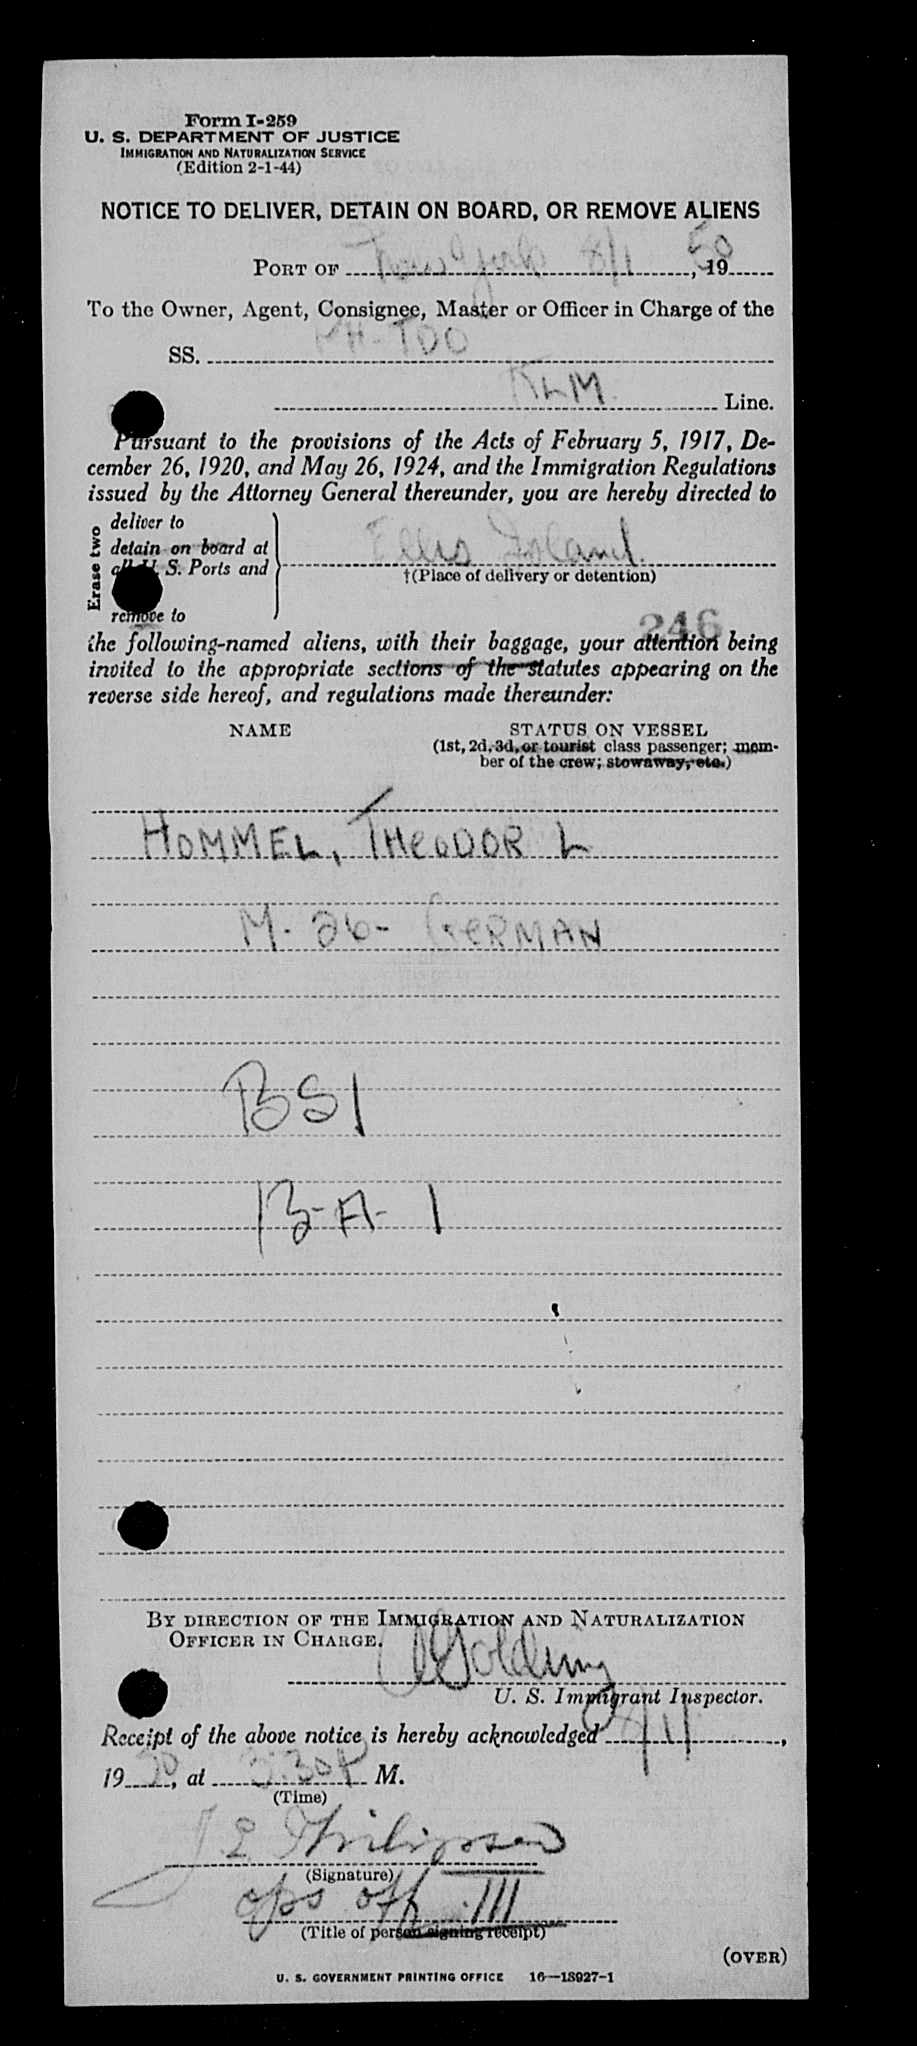 Form I-259
U. S. DEPARTMENT OF JUSTICE
IMMIGRATION AND NATURALIZATION SERVICE
(Edition 2-1-44)
NOTICE TO DELIVER, DETAIN ON BOARD, OR REMOVE ALIENS
PORT OF New York 8/1, 1950
To the Owner, Agent, Consignee, Master or Officer in Charge of the
SS. PH-TDO
KLM Line.
Pursuant to the provisions of the Acts of February 5, 1917, De-
cember 26, 1920, and May 26, 1924, and the Immigration Regulations
issued by the Attorney General thereunder, you are hereby directed to
Erase two
deliver to
detain on board at
all U. S. Ports and
remove to
Ellis Island.
†(Place of delivery or detention)
246
the following-named aliens, with their baggage, your attention being
invited to the appropriate sections of the statutes appearing on the
reverse side hereof, and regulations made thereunder:
NAME STATUS ON VESSEL
(1st, 2d, 3d, or tourist class passenger; mem-
ber of the crew; stowaway, etc.)
HOMMEL, THEODOR L
M. 26- GERMAN
BSI
B-A- 1
BY DIRECTION OF THE IMMIGRATION AND NATURALIZATION
OFFICER IN CHARGE.
U. S. Immigrant Inspector.
Receipt of the above notice is hereby acknowledged 8/1,
1950, at 3:30 P M.
(Time)
(Signature)
ops off III
(Title of person signing receipt)
(OVER)
U. S. GOVERNMENT PRINTING OFFICE 16—18927-1